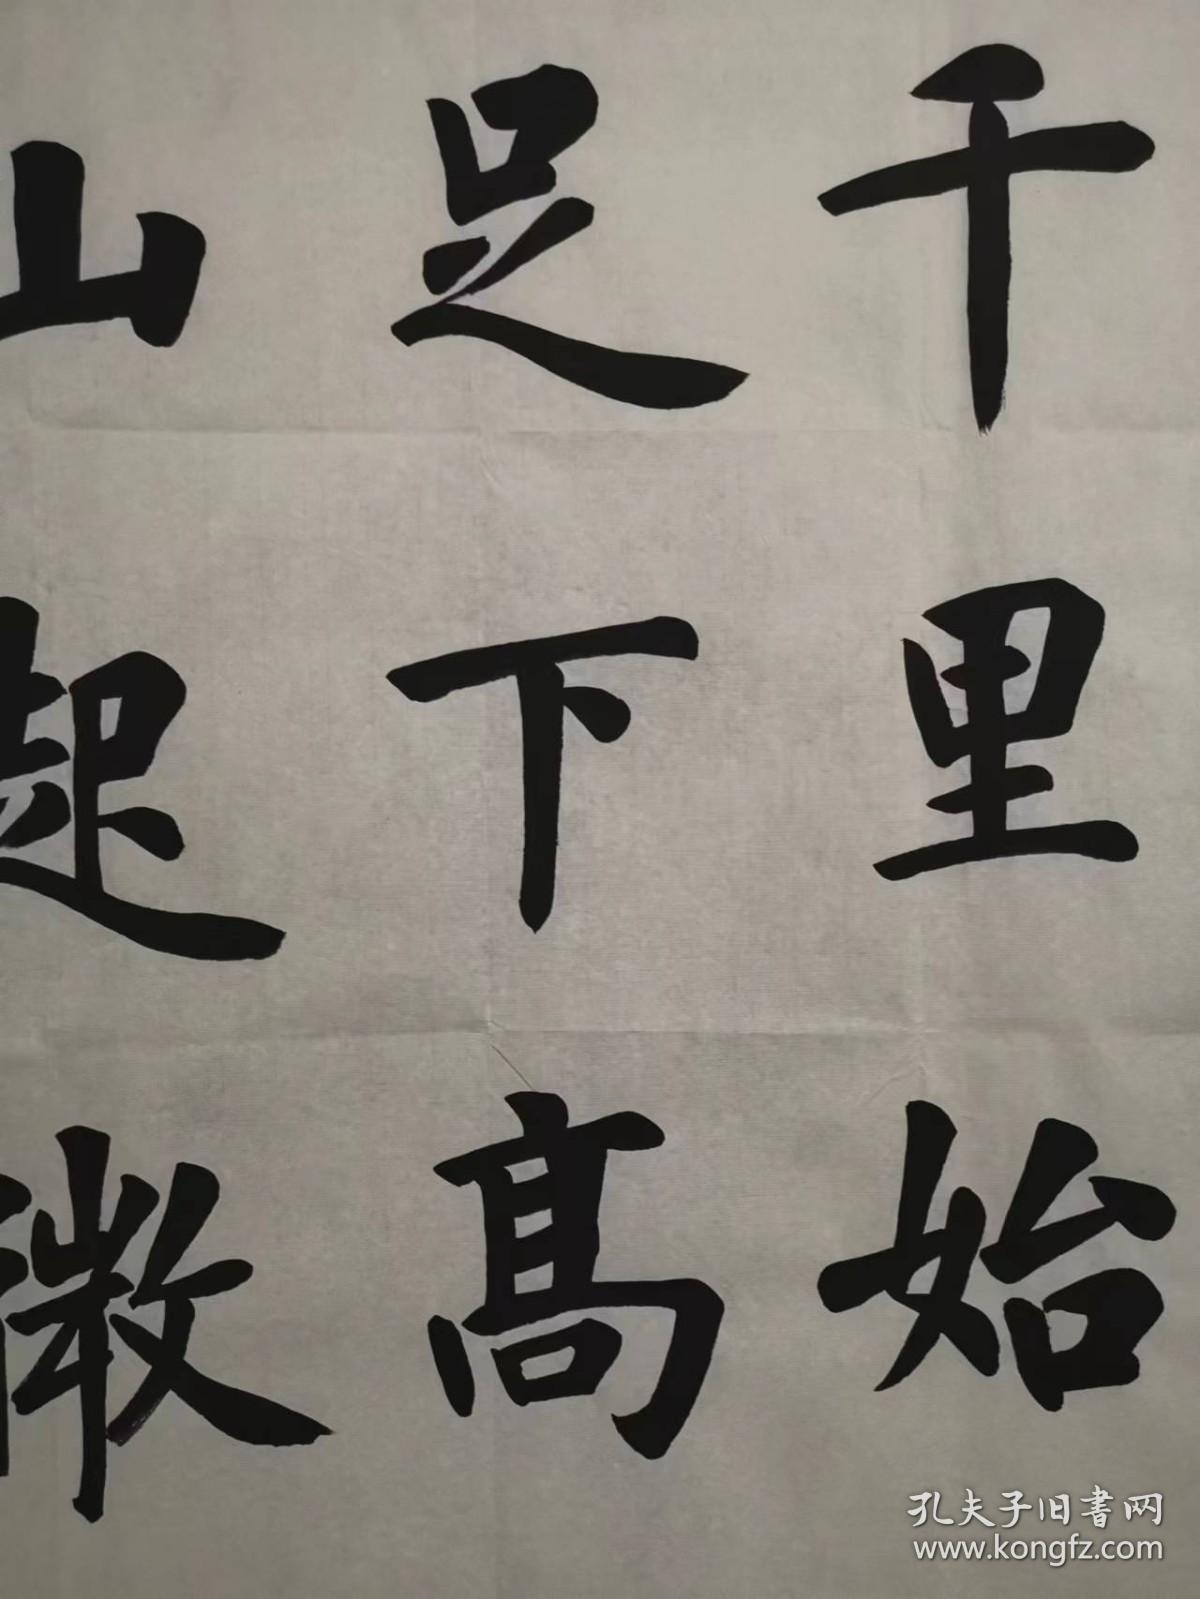 千里始
足下高
山起微
孔夫子旧書网
www.kongfz.com